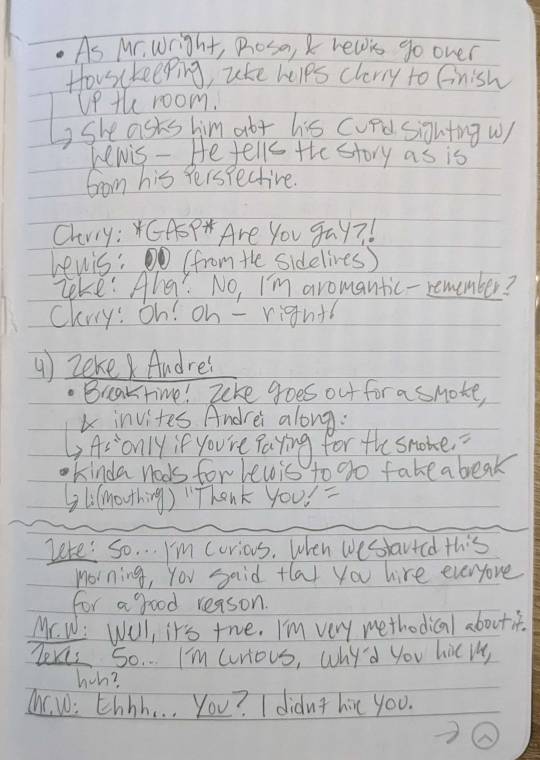 • As Mr. Wright, Rosa, & Lewis go over
Housekeeping, Zeke helps Cherry to finish
up the room.
↳ She asks him abt his Cupid sighting w/
Lewis – He tells the story as is
from his perspective.
Cherry: *GASP* Are you gay?!
Lewis: 👀 (from the sidelines)
Zeke: Aha! No, I'm aromantic – remember?
Cherry: Oh! Oh – right!
4) Zeke & Andrei
• Breaktime! Zeke goes out for a smoke,
& invites Andrei along:
↳ A: "only if you're paying for the smoke."
• Kinda nods for Lewis to go take a break
↳ L: (mouthing) "Thank you!"
Zeke: So... I'm curious. When we started this
morning, you said that you hire everyone
for a good reason.
Mr.W: Well, it's true. I'm very methodical about it.
Zeke: So... I'm curious, why'd you hire me,
huh?
Mr.W: Ehhh... You? I didn't hire you.
→